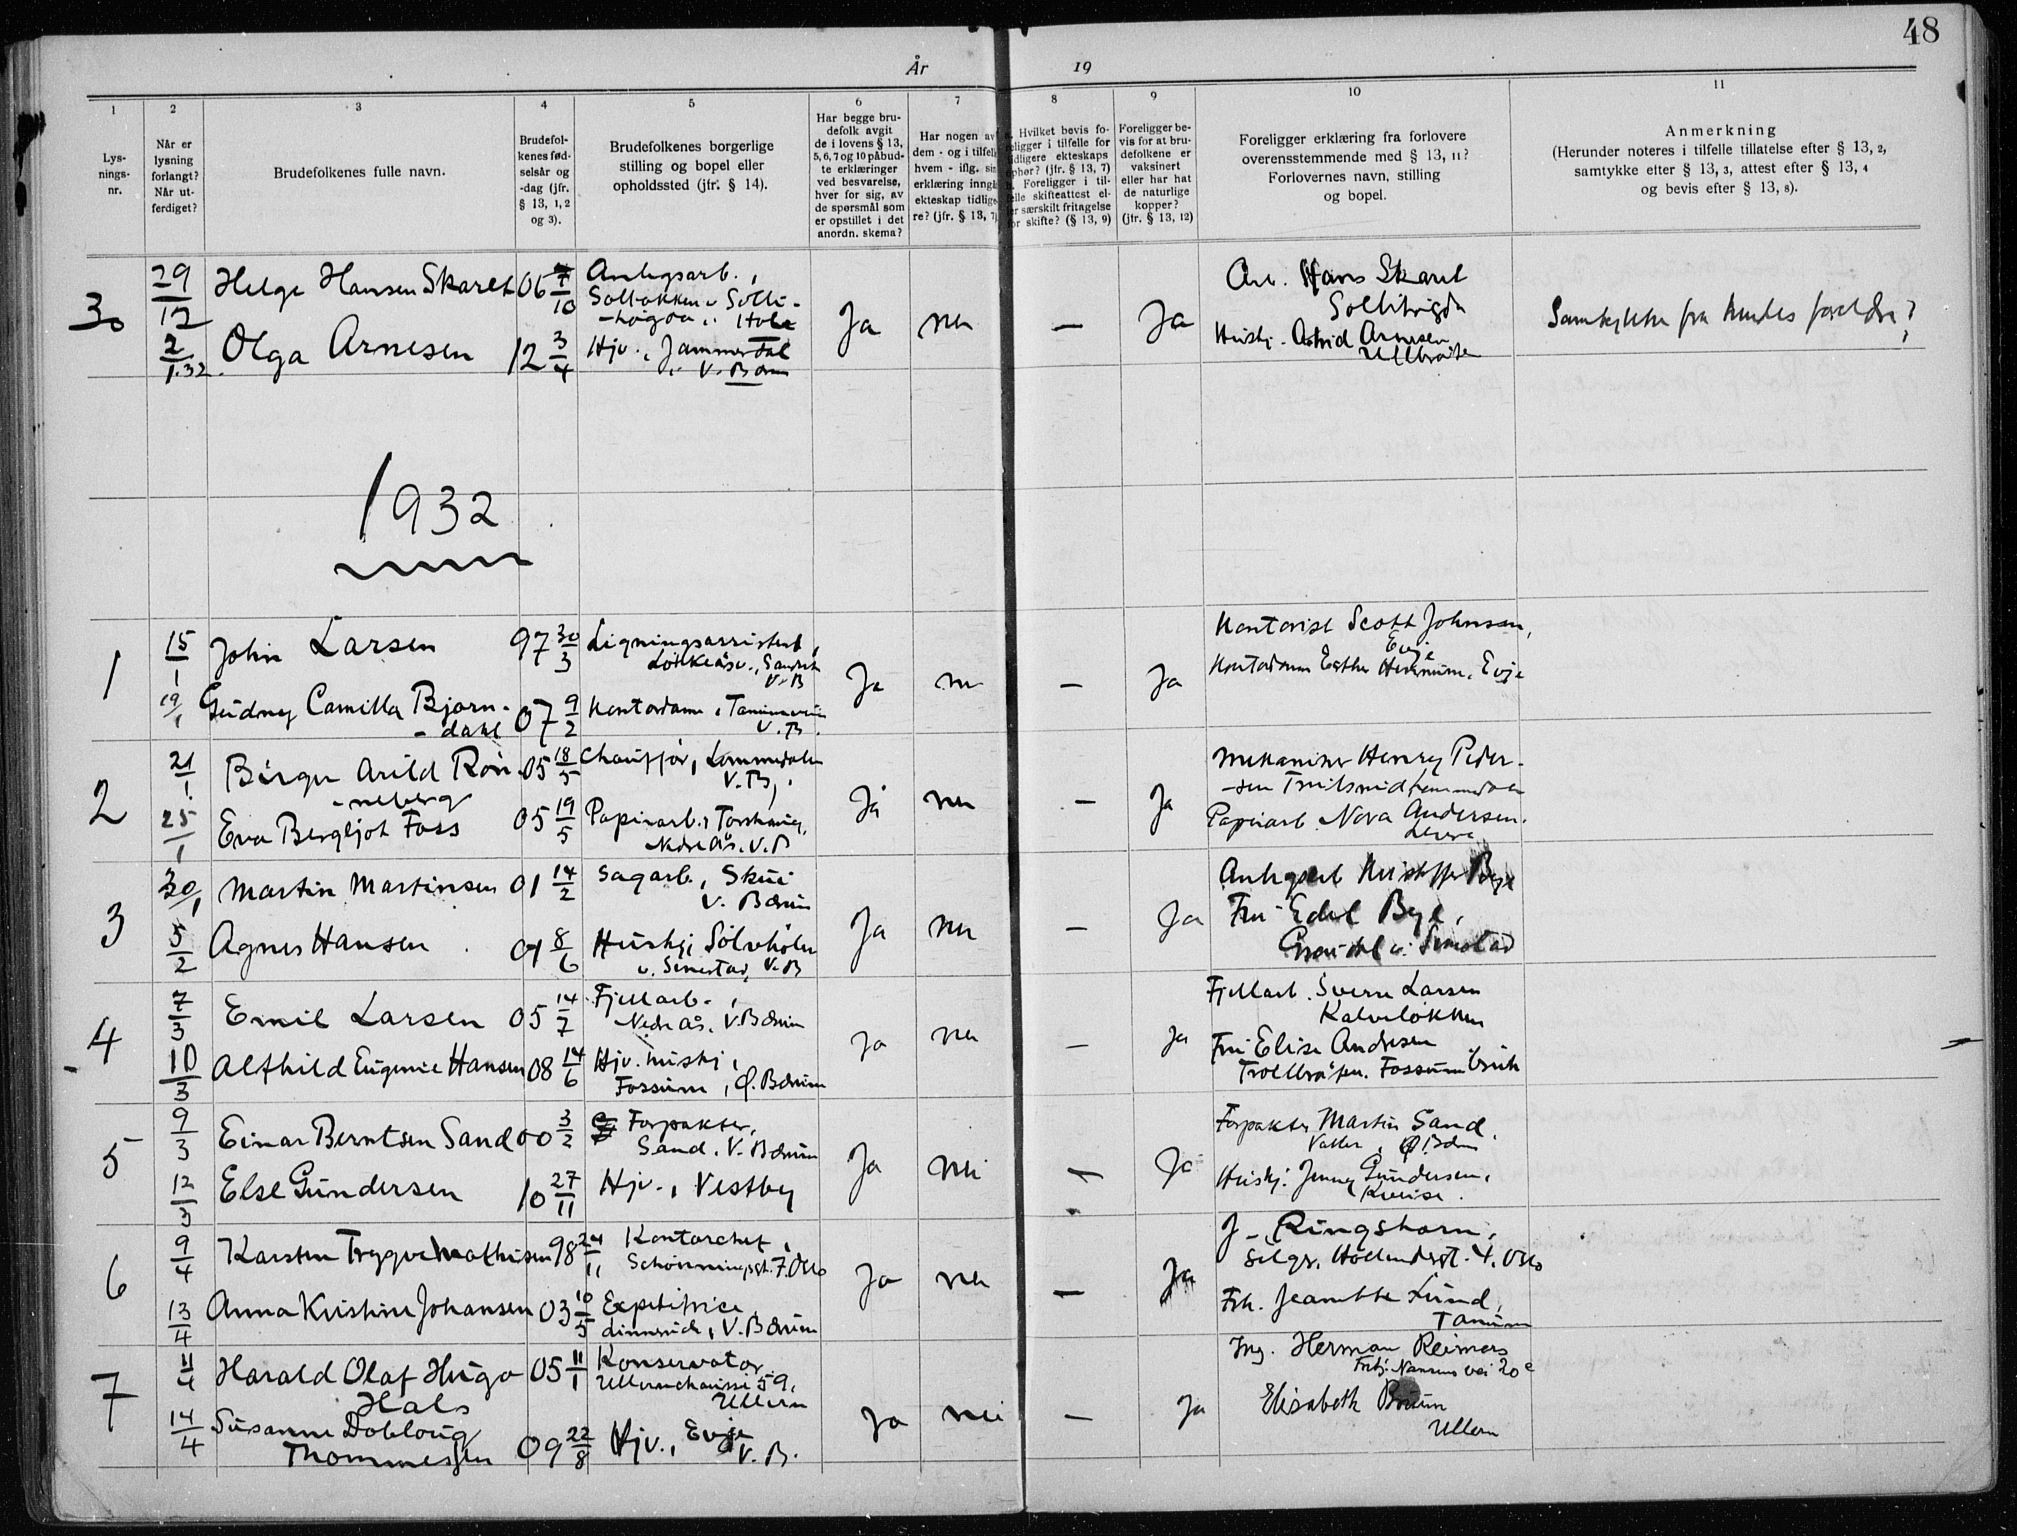 48
År 19
1 2 3 4 5 6 7 8 9 10 11
Lys-
nings-
nr.
Når er
lysning
forlangt?
Når ut-
ferdiget?
Brudefolkenes fulle navn.
Brudefol-
kenes fød-
selsår og
-dag (jfr.
§ 13, 1, 2
og 3).
Brudefolkenes borgerlige
stilling og bopel eller
opholdssted (jfr. § 14).
Har begge bru-
defolk avgit
de i lovens § 13,
5, 6, 7 og 10 påbud-
te erklæringer
ved besvarelse,
hver for sig, av
de spørsmål som
er opstillet i det
anordn. skema?
Har nogen av
dem - og i tilfelle
hvem - iflg. sin
erklæring inngått
ekteskap tidlige-
re? (jfr. § 13, 7)
Hvilket bevis fo-
religger i tilfelle for
tidligere ekteskaps
ophør? (jfr. § 13, 7)
Foreligger i til-
felle skifteattest el-
ler særskilt fritagelse
for skifte? (§ 13, 9)
Foreligger be-
vis for at bru-
defolkene er
vaksinert
eller har hat
de naturlige
kopper?
(jfr. § 13, 12)
Foreligger erklæring fra forlovere
overensstemmende med § 13, 11?
Forlovernes navn, stilling
og bopel.
Anmerkning
(Herunder noteres i tilfelle tillatelse efter § 13, 2,
samtykke efter § 13, 3, attest efter § 13, 4
og bevis efter § 13, 8).
30 29/12 Helge Hansen Skaret 06 7/10 Anlegsarb.,
Solli-
-høgda, Hole
Ja nei — Ja
Arb. Hans Skaret
Sollihøgda
2/1.32. Olga Arnesen 12 3/4 Hjv., Jammerdal
V. Bærum
Huskj. Astrid Arnesen
Samtykke fra hendes foreldre?
1932
1 15/1 John Larsen 97 30/3 Ligningsassistent,
Løkkeåsv., Sandvik
V. B
Ja nei — Ja
Kontorist Scott Johnsen,
Evje
19/1 Gudney Camilla Bjørn-
-dahl 07 9/2 Kontordame, Tanumveien
V. B.
Kontordame Esther, Evje
2 21/1 Birger Arild Røn-
-neberg 05 18/5 Chauffør, Lommedalen
V. B.
Ja nei — Ja
Mekaniker Henry Peder-
-sen Lommedalen
25/1 Eva Bergljot Foss 05 19/5 Papirarb.,
Nedre Ås. V. B
Papirarb. Nora Andersen.
3 30/1 Martin Martinsen 01 14/2 Sagarb., Skui
V. Bærum
Ja nei — Ja
Anlegsarb Kristoffer Bye
5/2 Agnes Hansen 09 8/6 Huskj, Sølvhølen
v. Simestad, V. B
Fru Edel Bye,
v. Simestad
4 7/3 Emil Larsen 05 14/7 Fjellarb.,
Nedre Ås, V. Bærum
Ja nei — Ja
Fjellarb. Sverre Larsen
Kalveløkken
10/3 Alfhild Eugenie Hansen 08 14/6 Hjv. huskj,
Fossum, Ø. Bærum
Fru Elise Andresen
Fossum bruk
5 9/3 Einar Berntsen Sand 00 3/2 Forpakter,
Sand, V. Bærum
Ja nei — Ja
Forpakter Martin Sand,
Valler, Ø. Bærum
12/3 Else Gundersen 10 27/11 Hjv., Vestby
Huskj. Jenny Gundersen,
6 9/4 Karsten Trygve Mathisen 98 24/11 Kontorchef,
Schønningsgt. 7, Oslo
Ja nei — Ja
J. Ringshorn,
Selgr. Hollendergt. 4, Oslo
13/4 Anna Kristine Johansen 03 10/5 Expeditrice,
Linnerud, V. Bærum
Frk. Jeanette Lund,
Tanum
7 11/4 Harald Olaf Hugo
Hals 05 11/1 Konservator
Ullernchaussé 59,
Ullern
Ja nei — Ja
Ing. Herman Reimers
Fritj. Nansens vei 20c
14/4 Susanne Dobloug
Thommessen 09 22/8 Hjv., Evje
V. B.
Elisabeth Bruun
Ullern